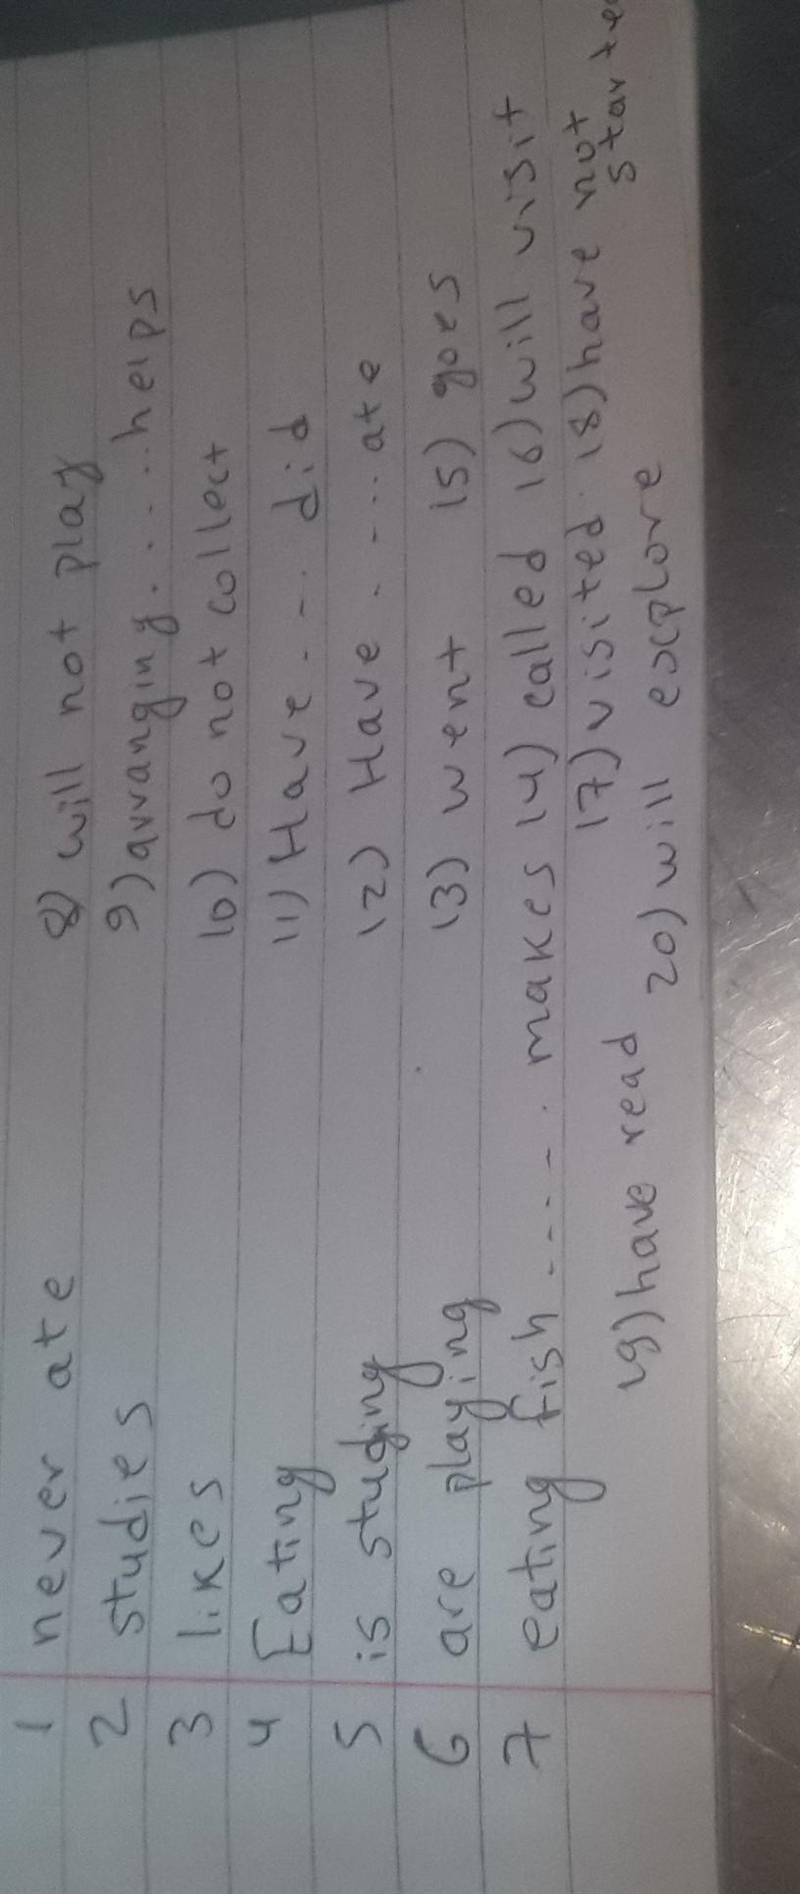 1 never ate
2 studies
3 likes
4 Eating
5 is studing
6 are playing
7 eating fish ..... makes
8) will not play
9) arranging ..... helps
10) do not collect
11) Have .... did
12) Have ..... ate
13) went 15) goes
14) called 16) will visit
17) visited 18) have not
19) have read 20) will explore